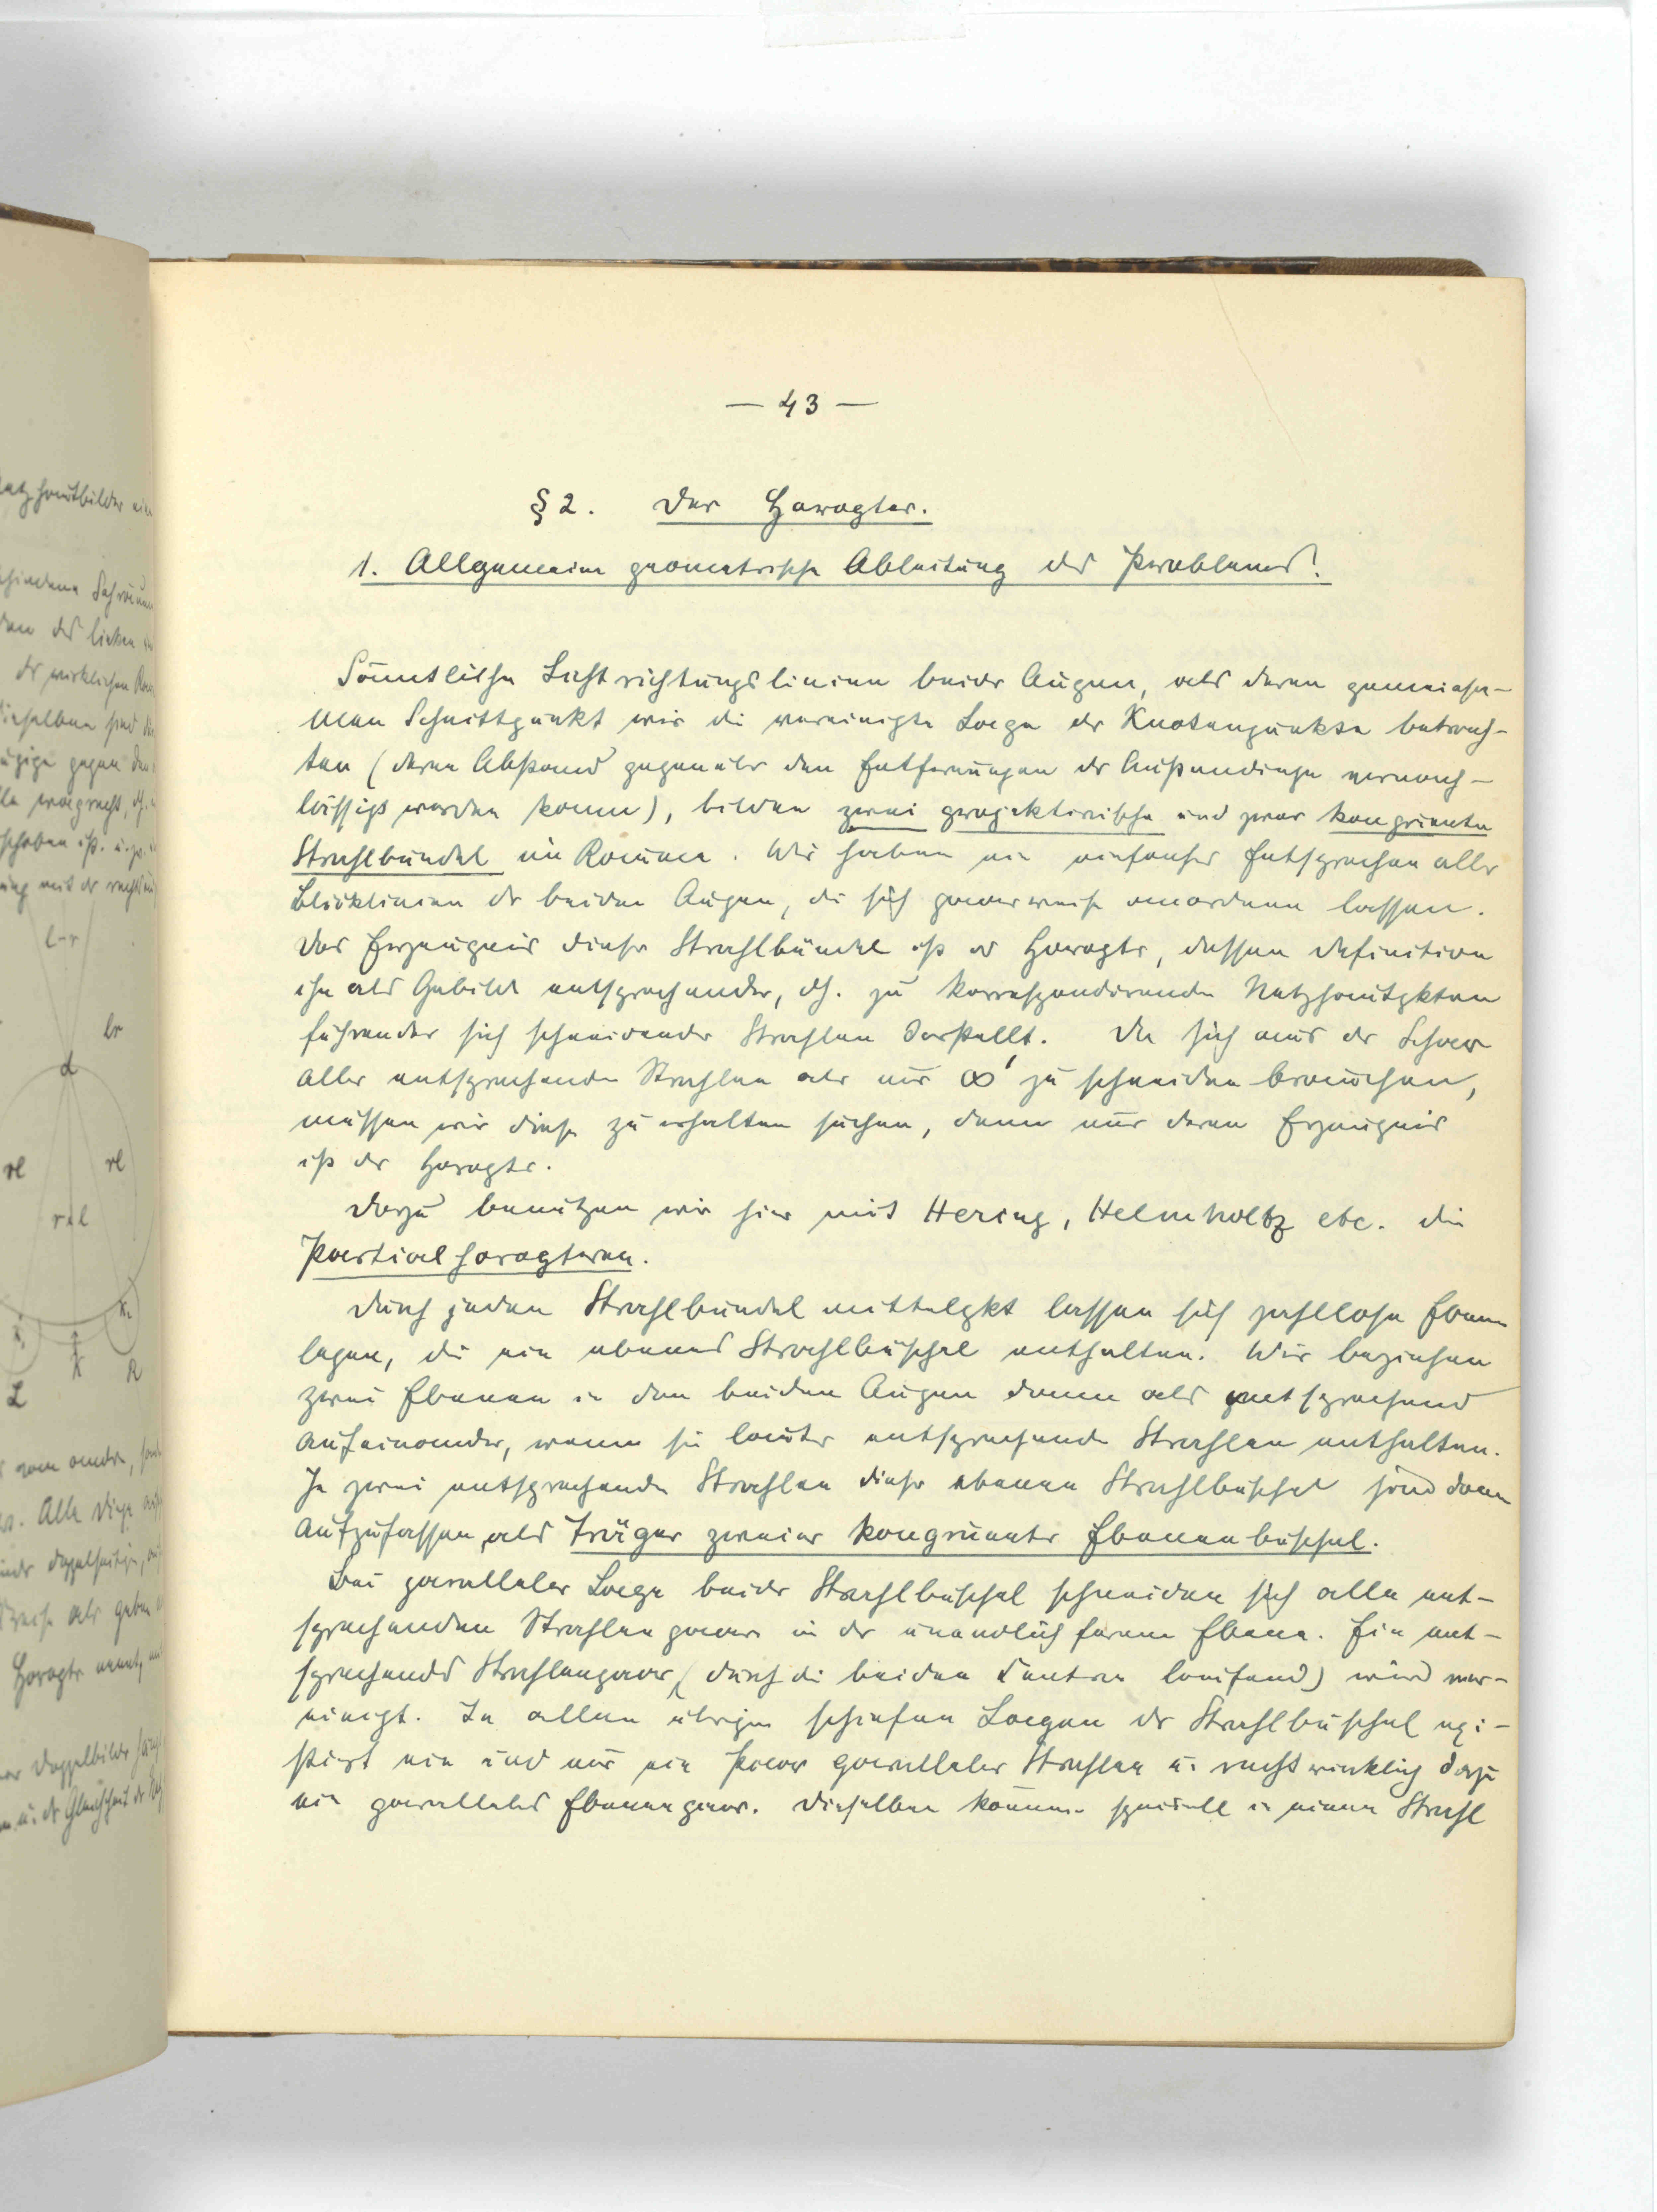 — 43 —
§ 2. Der Horopter.
1. Allgemeine geometrische Ableitung des Problems.
Sämtliche Lichtrichtungslinien beider Augen, als deren gemeinsa-
men Schnittpunkt wir die vereinigte Lage der Knotenpunkte betrach-
ten (deren Abstand gegenüber den Entfernungen der Außendinge vernach-
lässigt werden kann), bilden zwei projektivische und zwar kongruente
Strahlbündel im Raume. Wir haben ein einfaches Entsprechen aller
Blicklinien der beiden Augen, die sich paarweise anordnen lassen.
Das Erzeugnis dieser Strahlbündel ist der Horopter, dessen Definition
ihn als Gebilde entsprechender, dh. zu korrespondirenden Netzhautpkten
führender sich schneidender Strahlen darstellt. Da sich aus der Schar
aller entsprechenden Strahlen aber nur ∞¹ zu schneiden brauchen,
müssen wir diese zu erhalten suchen, denn nur deren Erzeugnis
ist der Horopter.
Dazu benützen wir hier mit Hering, Helmholtz etc. die
Partialhoropteren.
Durch jeden Strahlbündelmittelpkt lassen sich zahllose Ebenen
legen, die ein ebenes Strahlbüschel enthalten. Wir beziehen
zwei Ebenen in den beiden Augen dann als entsprechend
aufeinander, wenn sie lauter entsprechende Strahlen enthalten.
Je zwei entsprechende Strahlen dieser ebenen Strahlbüschel sind dann
aufzufassen als Träger zweier kongruenter Ebenenbüschel.
Bei paralleler Lage beider Strahlbüschel schneiden sich alle ent-
sprechenden Strahlenpaare in der unendlich fernen Ebene. Ein ent-
sprechendes Strahlenpaar (durch die beiden Centren laufend) wird ver-
einigt. In allen übrigen schiefen Lagen der Strahlbüschel exi-
stiert ein und nur ein Paar paralleler Strahlen u. rechtwinklig dazu
ein paralleles Ebenenpaar. Dieselben können speciell in einen Strahl